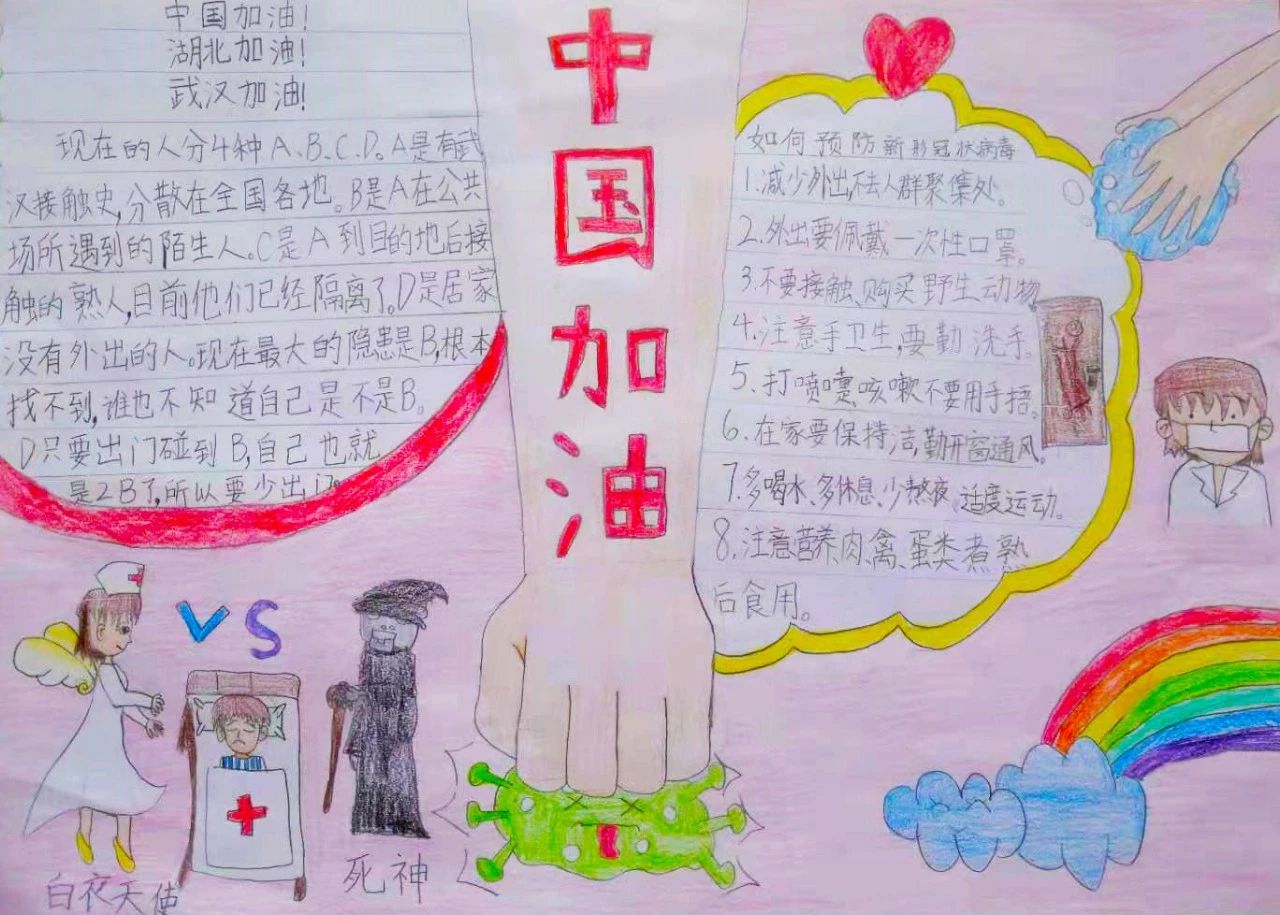 中国加油!
湖北加油!
武汉加油!
现在的人分4种A、B、C、D。A是有武
汉接触史,分散在全国各地。B是A在公共
场所遇到的陌生人。C是A到目的地后接
触的熟人,目前他们已经隔离了。D是居家
没有外出的人。现在最大的隐患是B,根本
找不到,谁也不知道自己是不是B。
D只要出门碰到B,自己也就
是2B了,所以要少出门。
中
国
加
油
如何预防新形冠状病毒
1.减少外出,不去人群聚集处。
2.外出要佩戴一次性口罩。
3.不要接触、购买野生动物
4.注意手卫生,要勤洗手。
5.打喷嚏咳嗽不要用手捂。
6.在家要保持洁,勤开窗通风。
7.多喝水、多休息、少熬夜、适度运动。
8.注意营养、肉、禽、蛋类煮熟
后食用。
VS
白衣天使
死神